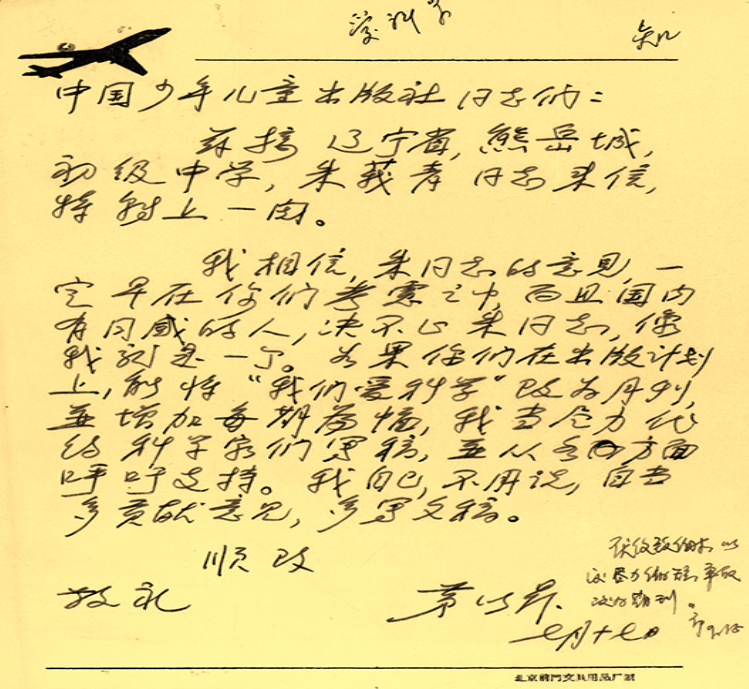 中国少年儿童出版社同志们：
兹接辽宁省，熊岳城，
初级中学，朱莪孝同志来信，
特转上一阅。
我相信，朱同志的意见，一
定早在你们考虑之中，而且国内
有同感的人，决不止朱同志，像
我就是一个。如果你们在出版计划
上，能将“我们爱科学”改为月刊，
并增加每期篇幅，我当尽力代
约科学家们写稿，并从各方面
呼吁支持。我自己，不用说，自当
多贡献意见，多写文稿。
顺致
敬礼
七月十七日
北京前门文具用品厂制